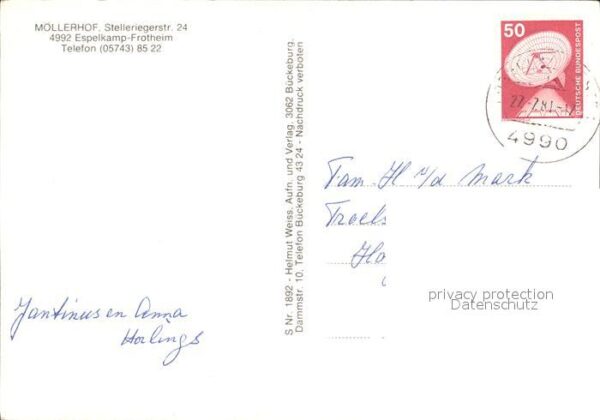 MÖLLERHOF, Stelleriegerstr. 24
4992 Espelkamp-Frotheim
Telefon (05743) 85 22
50
DEUTSCHE BUNDESPOST
27.-7.81.-
4990
S Nr. 1892 - Helmut Weiss. Aufn. und Verlag, 3062 Bückeburg.
Dammstr. 10, Telefon Bückeburg 43 24 - Nachdruck verboten
Fam. H v/d Mark
Troels
Ho
privacy protection
Datenschutz
Jantinus en Anna
Horlings